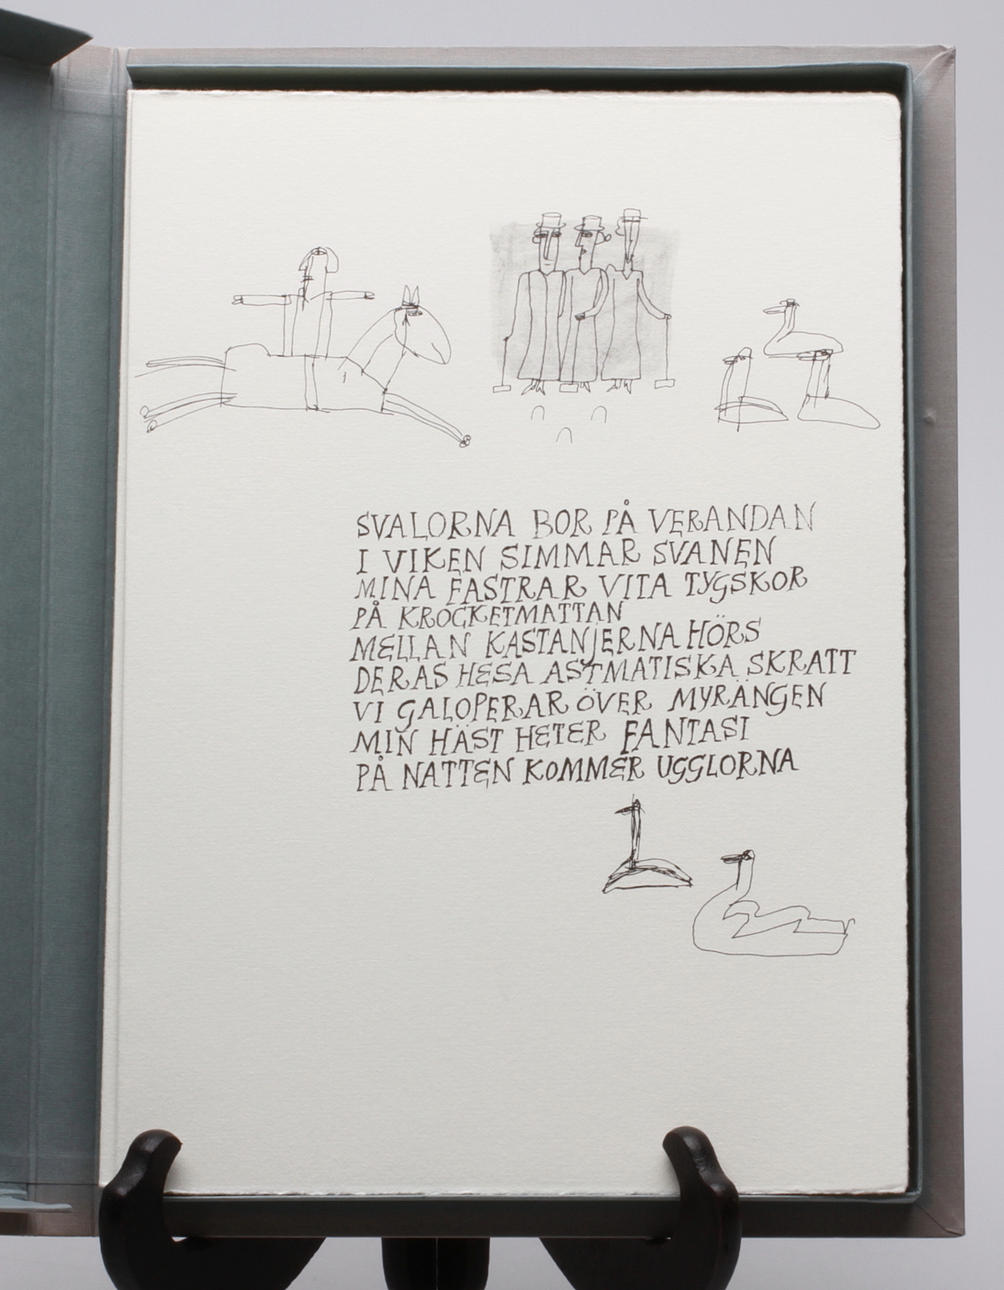 SVALORNA BOR PÅ VERANDAN
I VIKEN SIMMAR SVANEN
MINA FASTRAR VITA TYGSKOR
PÅ KROCKETMATTAN
MELLAN KASTANJERNA HÖRS
DERAS HESA ASTMATISKA SKRATT
VI GALOPERAR ÖVER MYRÄNGEN
MIN HÄST HETER FANTASI
PÅ NATTEN KOMMER UGGLORNA